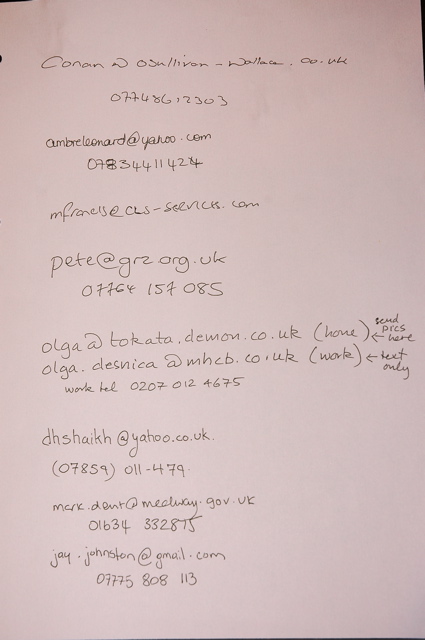 Conan @ osullivan-wallace.co.uk
07748612303
ambreleonard@yahoo.com
07834411424
mfrancis@cls-services.com
pete@gr2.org.uk
07764 157 085
olga@tokata.demon.co.uk (home) ← send pics here
olga.desnica@mhcb.co.uk (work) ← text only
work tel 0207 012 4675
dhshaikh@yahoo.co.uk.
(07859) 011-479
mark.dent@medway.gov.uk
01634 332875
jay.johnston@gmail.com
07775 808 113